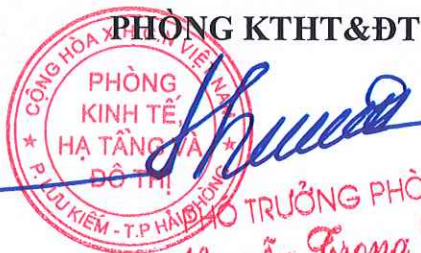 PHÒNG KTHT&ĐT
CỘNG HÒA X.H.C.N VIỆT NAM
PHÒNG
KINH TẾ,
HẠ TẦNG VÀ
ĐÔ THỊ
P. LƯU KIẾM - T.P HẢI PHÒNG
PHÓ TRƯỞNG PHÒ
Trọng